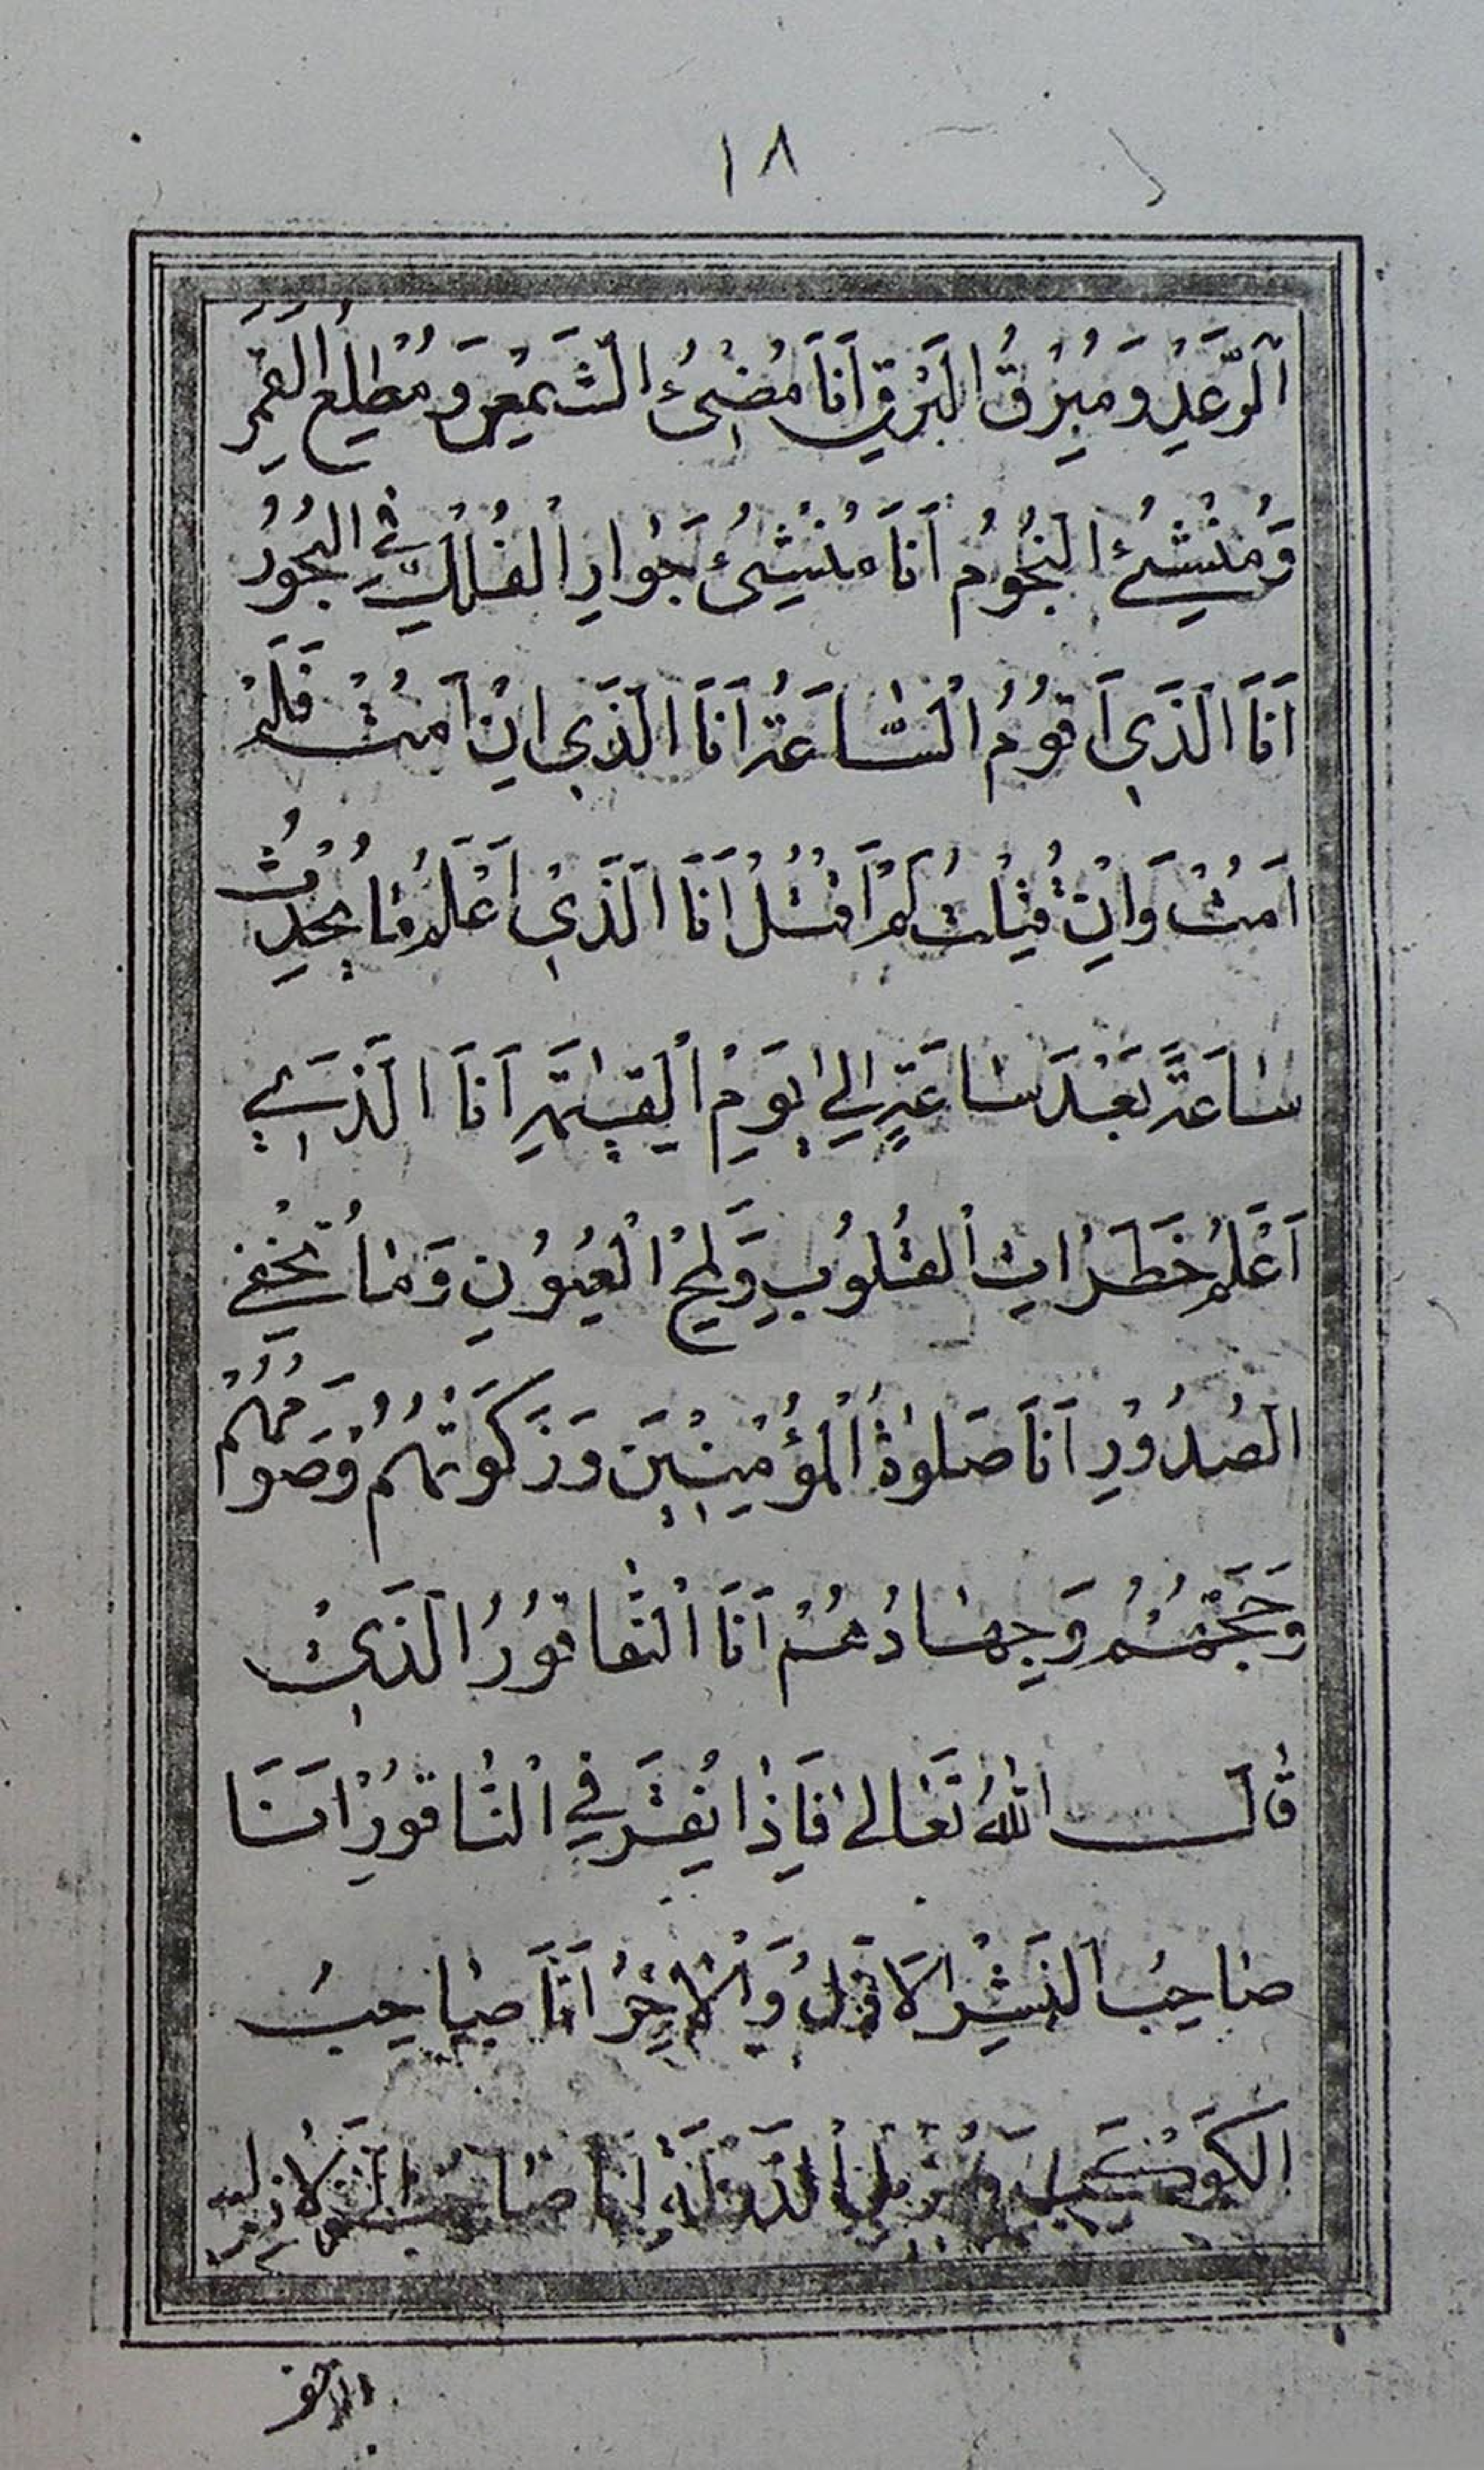 ١٨
اَلرَّعَدِ وَ مُبْرِقُ الْبَرْقِ اَنَا مُضِيْئُ الشَّمْسِ وَ مُطْلِعُ الْقَمَرِ
وَ مُنْشِئُ النُجُوُم اَنَا مُنْشِئُ جَوٰارِ الْفُلْكِ فِي الْبُحُوُرُ
اَنَا الَّذَي اَقوُمُ الْسّٰاعَةُ اَنَا الَّذَي اِنْ اُمِتُ فَلَمْ
اَمُتْ وَاِنْ قُتِلْتُ لَمْ اُقْتَلْ اَنَا الَّذَيْ اَعْلَمُ مٰا يُحْدِثُ
سٰاعَةً بَعْدَ سٰاعَةٍ اِلي يَوَمِ الْقِيٰمَةِ اَنَا الَّذَي
اَعْلَمُ خَطَرٰاتِ الْقُلوُبِ وَ لَمْحِ الْعُيُوُنِ وَ مٰا تُخْفِي
الْصُدُوْرِ اَنَا صَلوٰةُ الْمُؤْمِنِيْنَ وَ زَكَوتُهُمْ وَ صَوْمُهُمْ
وَ حَجَّهُمْ وَ جِهٰادُهُمْ اَنَا الْنّٰاقوُرُ الَّذَيْ
قٰالَ اللّٰهُ تَعٰالىٰ فَاِذٰا نُقِرَ فِي الْنّٰاقوُرْ اَنَا
صٰاحِبُ الْنَشْرِ الْاَوَّلُ وَ الْاٰخِرُ اَنَا صٰاحِبُ
الْكَوْكَبِ وَ مُزيلُ الدَّوْلَةِ اَنَا صٰاحِبُ